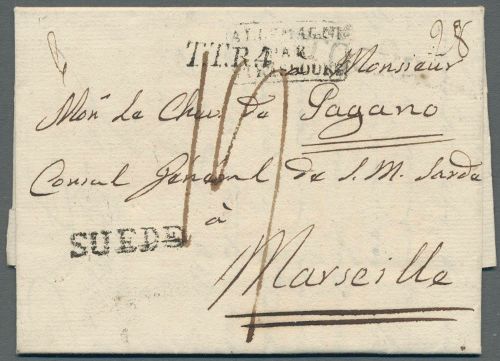 ALLEMAGNE
PAR
STRASBOURG
T.T.R.4.
28
Monsieur
Mon^r Le Chev. de Pagano
Consul Général de S. M. Sarde
à
SUEDE
Marseille